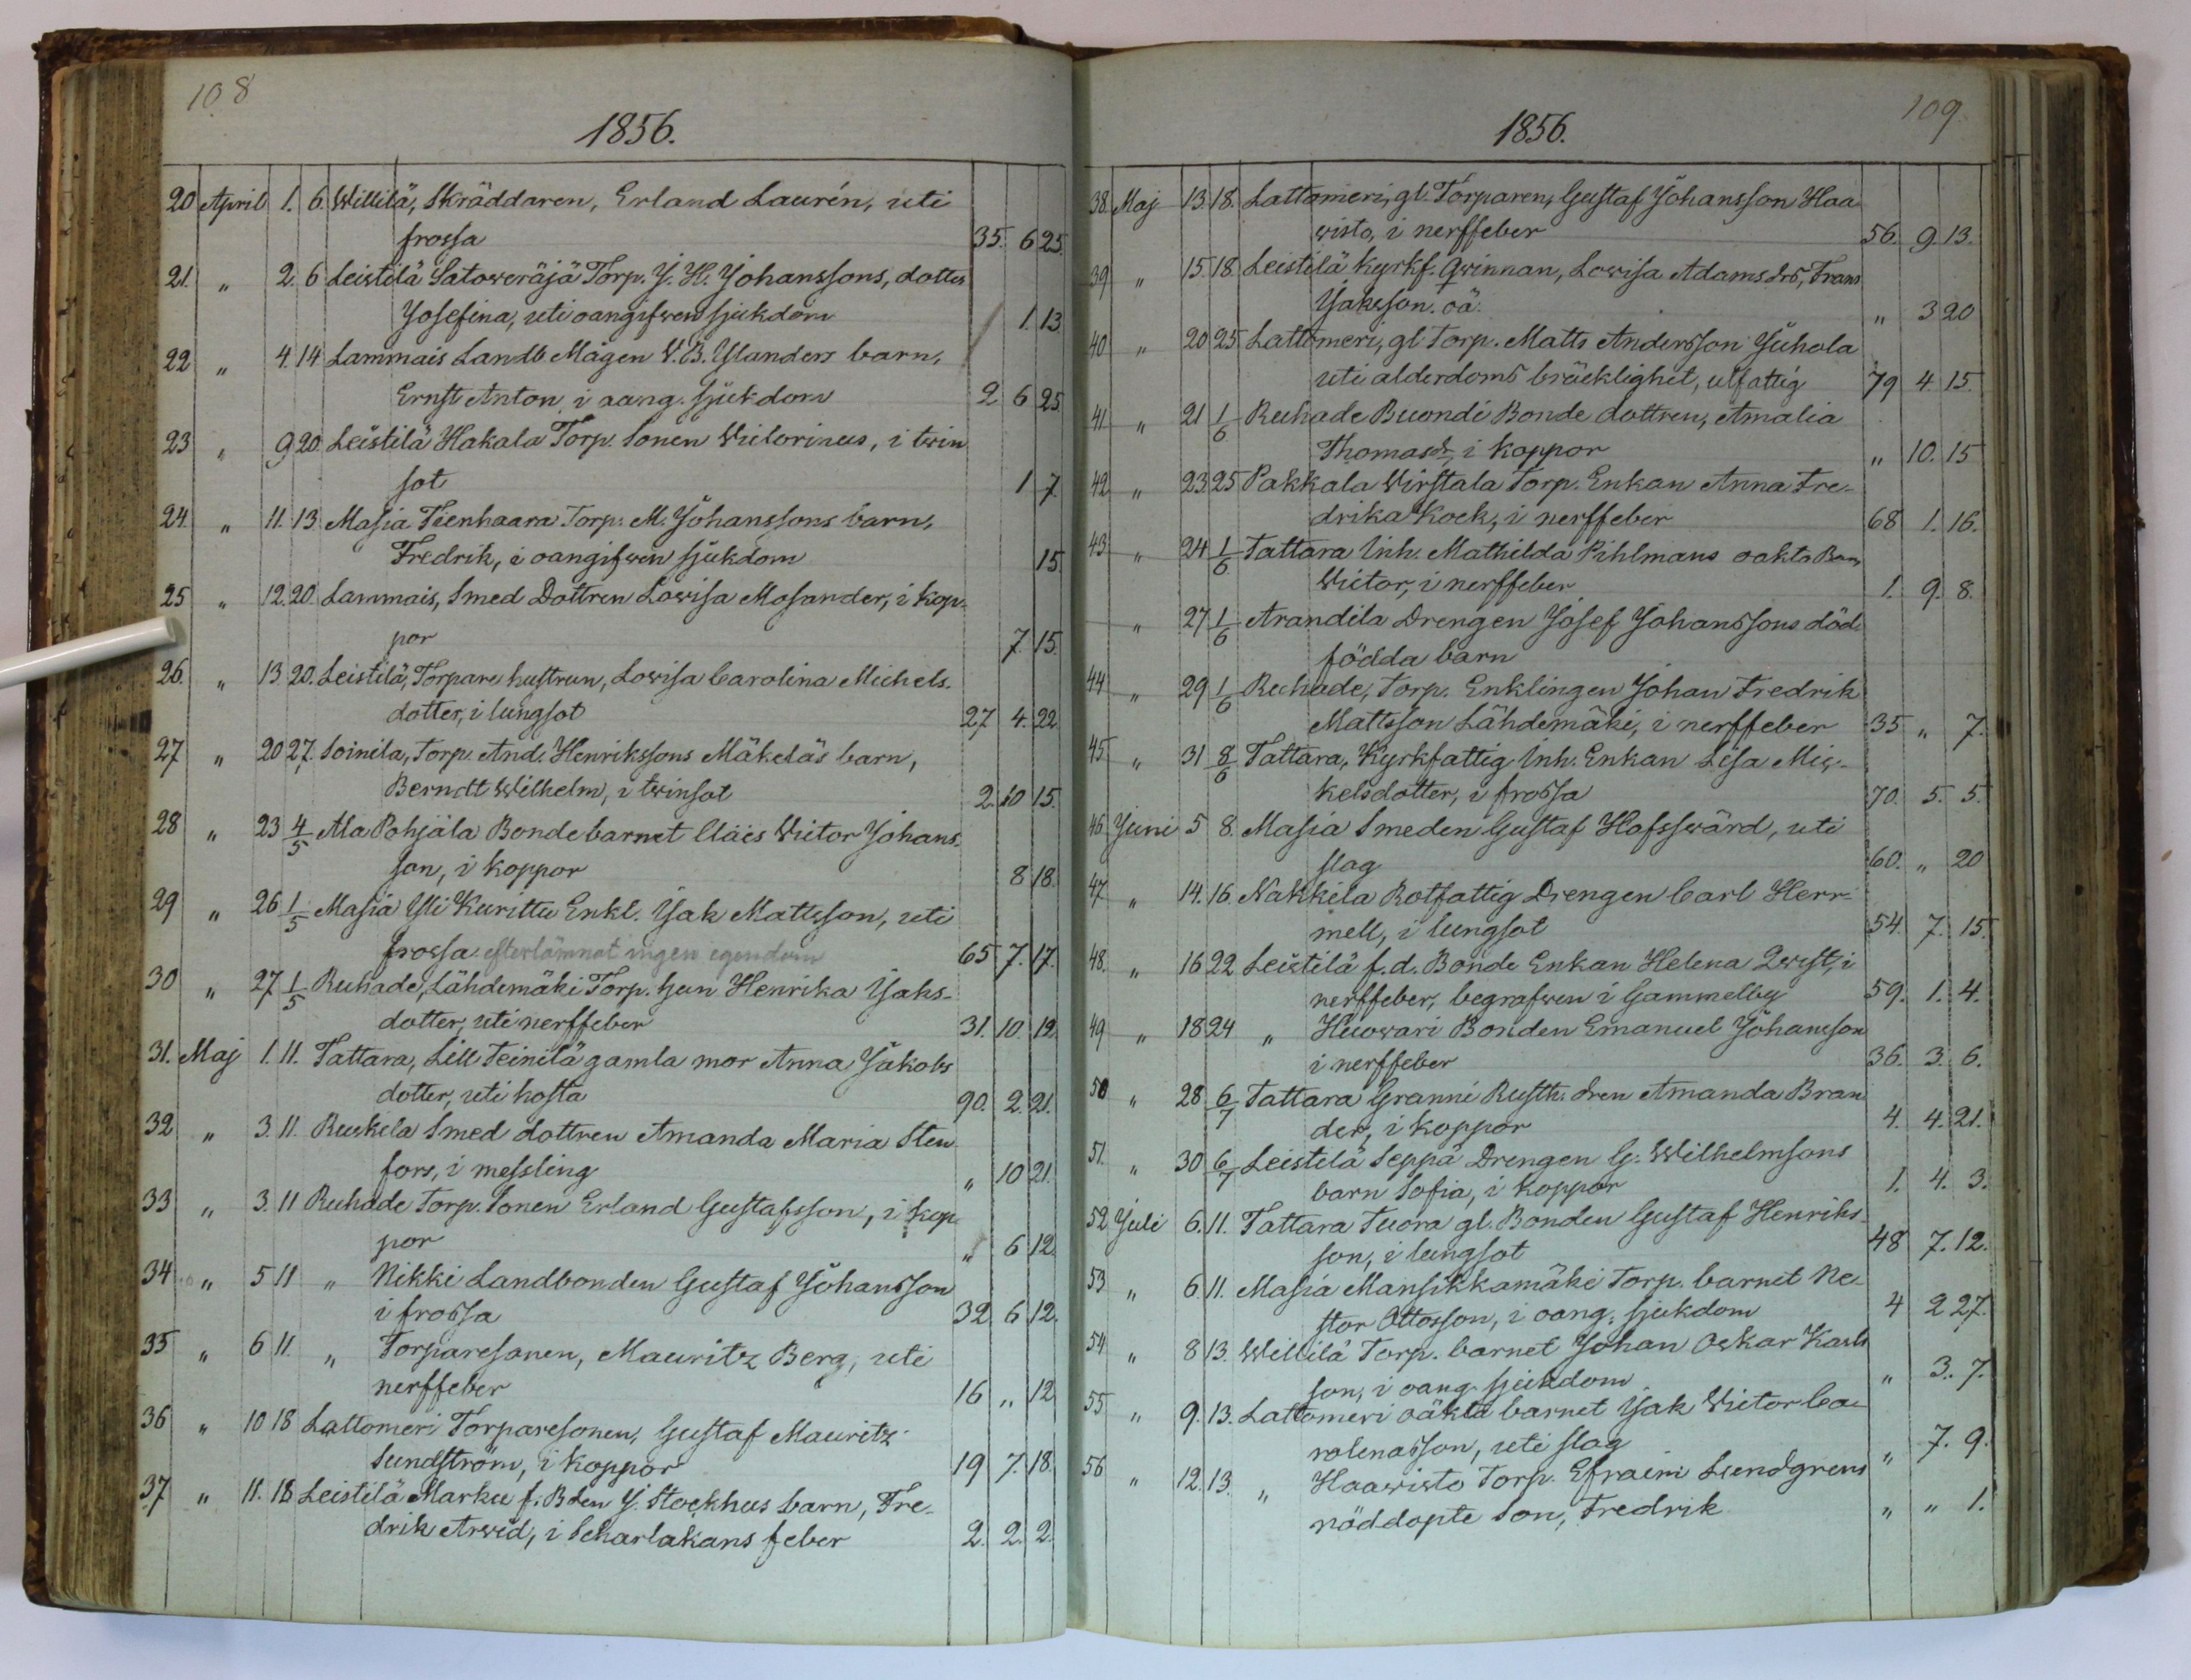 108
1856.
20 April 1. 6. Willilä, Skräddaren, Erland Laurén, uti
frossa 35. 6 25.
21. " 2. 6 Leistilä Satoweräjä Torp. J. H. Johanssons, dotter
Josefina, uti oangifwen sjukdom 1. 13.
22 " 4. 14 Lammais Landb Mågen V. B. Ylanders barn,
Ernst Anton i oang. sjukdom 2 6 25.
23 " 9 20. Leistilä Hakala Torp. Sonen Victorinus, i twin
sot 1 7.
24 " 11. 13 Masia Tienhaara Torp: M. Johanssons barn,
Fredrik, i oangifwen sjukdom 15.
25 " 12. 20. Lammais, Smed Dottren Lowisa Mosander, i kop-
por 7. 15.
26. " 13 20. Leistilä, Torpare hustrun, Lowisa Carolina Michels-
dotter, i lungsot 27 4. 22.
27 " 20 27. Soinila, Torp. And. Henrikssons Mäkeläs barn,
Berndt Wilhelm, i twinsot 2. 10 15.
28 " 23 4/5 Ala Pohjala Bonde barnet Claës Victor Johans-
son, i koppor 8 18.
29 " 26 1/5 Masia Yli Kurittu Enkl. Isak Mattsson, uti
frossa. efterlämnat ingen egendom 65 7. 17.
30 " 27 1/5 Ruhade, Lähdemäki Torp. hun Henrika Isaks-
dotter, uti nerffeber 31. 10. 12.
31. Maj 1. 11. Tattara, Lill Teinilä gamla mor Anna Jakobs
dotter, uti hosta 90. 2. 21.
32 " 3. 11. Ruskila Smed dottren Amanda Maria Sten
fors, i messling " 10 21.
33 " 3. 11 Ruhade Torp. Sonen Erland Gustafsson, i kop-
por " 6 12.
34 " 5 11 " Nikki Landbonden Gustaf Johansson
i frossa 32. 6 12.
35 " 6 11. " Torparesonen, Mauritz Berg, uti
nerffeber 16 " 12
36 " 10 18 Lattomeri Torparesonen, Gustaf Mauritz
Sundström, i koppor 19 7. 18.
37 " 11. 18 Leistilä Marku f. Bden J. Stockhus barn, Fre-
drik Arwid, i Scharlakans feber 2. 2. 2.
109.
1856.
38. Maj 13. 18. Lattomeri, gl. Torparen, Gustaf Johansson Haa
wisto, i nerffeber 56. 9. 13.
39 " 15 18. Leistilä Kyrkf. Qwinnan, Lowisa Adamsdrs, Frans
Isaksson. oä. " 3 20
40 " 20 25 Lattomeri, gl. Torp. Matts Andersson Juhola
uti alderdoms bräcklighet, utfattig 79 4. 15.
41 " 21 1/6 Ruhade Buondi Bonde dottren, Amalia
Thomasdr, i koppor " 10. 15
42 " 23 25 Pakkala Wirstala Torp. Enkan Anna Fre-
drika Kock, i nerffeber 68 1. 16.
43 " 24 1/6 Tattara Inh. Mathilda Pihlmans oakta Barn
Victor, i nerffeber 1. 9. 8.
" 27 1/6 Arandila Drengen Josef Johanssons död-
födda barn
44 " 29 1/6 Ruhade, Torp. Enklingen Johan Fredrik
Mattsson Lähdemäki, i nerffeber 35 " 7.
45 " 31 8/6 Tattara, Kyrkfattig Inh. Enkan Lisa Mic-
kelsdotter, i frossa 70. 5. 5.
46. Juni 5 8. Masia Smeden Gustaf Hofswärd, uti
slag 60. " 20
47 " 14. 16. Nakkila Rotfattig Drengen Carl Herr-
mell, i lungsot 54. 7. 15.
48. " 16 22 Leistilä f. d. Bonde Enkan Helena Qwist, i
nerffeber, begrafwen i Gammelby 59. 1. 4.
49 " 18 24 " Huowari Bonden Emanuel Johansson
i nerffeber 36. 3. 6.
50 " 28 6/7 Tattara Granni Rusth. dren Amanda Bran
der, i koppor 4. 4. 21.
51. " 30 6/7 Leistilä Seppä Drengen G. Wilhelmsons
barn Sofia, i koppor 1. 4. 3.
52 Juli 6. 11. Tattara Tuora gl. Bonden Gustaf Henriks-
son, i lungsot 48 7. 12.
53 " 6. 11. Masia Mansikkamäki Torp. barnet Ne-
stor Ottosson, i oang. sjukdom 4 2 27.
54 " 8 13. Willilä Torp. barnet Johan Oskar Karls
son, i oang. sjukdom " 3. 7.
55 " 9. 13. Lattomeri oäkta barnet Isak Victor Ca-
rolinasson, uti slag " 7. 9.
56 " 12. 13. " Haawisto Torp. Efraim Lundgrens
nöddopte Son, Fredrik " " 1.